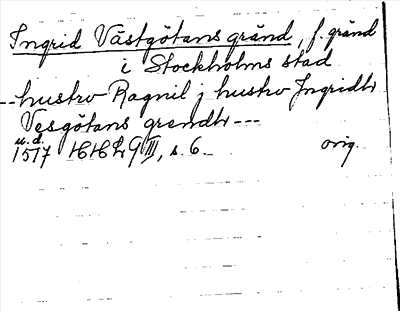 Ingrid Västgötans gränd, f. gränd
i Stockholms stad
---hustrv Ragnil j hustrv Ingridh
Vesgötans grendh---
u.d.
1517 HH 9 VIII, s. 6. orig.